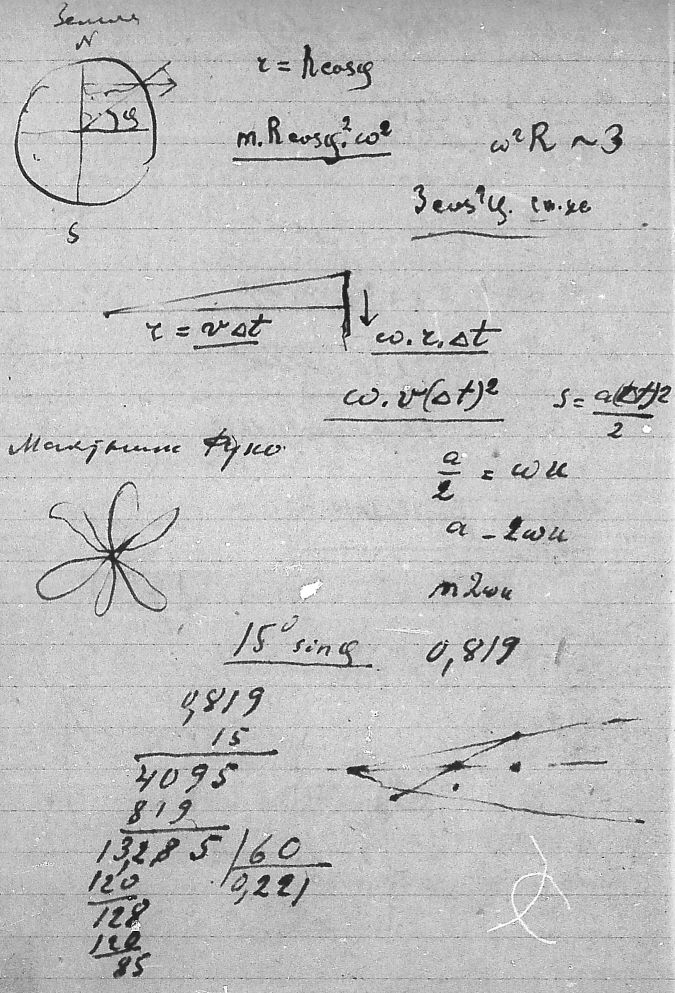 Земля
N
r = R cos φ
φ
m.R cos φ.² ω²
ω²R ~ 3
3 cos² φ.
S
r = v Δt
ω. r. Δt
ω. v(Δt)²
S = a(Δt)2 / 2
Маятник Фуко.
a / 2 = ωu
a - 2ωu
m2ωu
15⁰ sin φ
0,819
0,819
15
4095
819
13,285 | 60
120
0,221
128
120
85